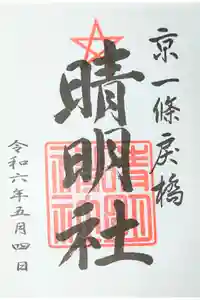 京一條戻橋
晴明社
晴明神社
令和六年五月四日